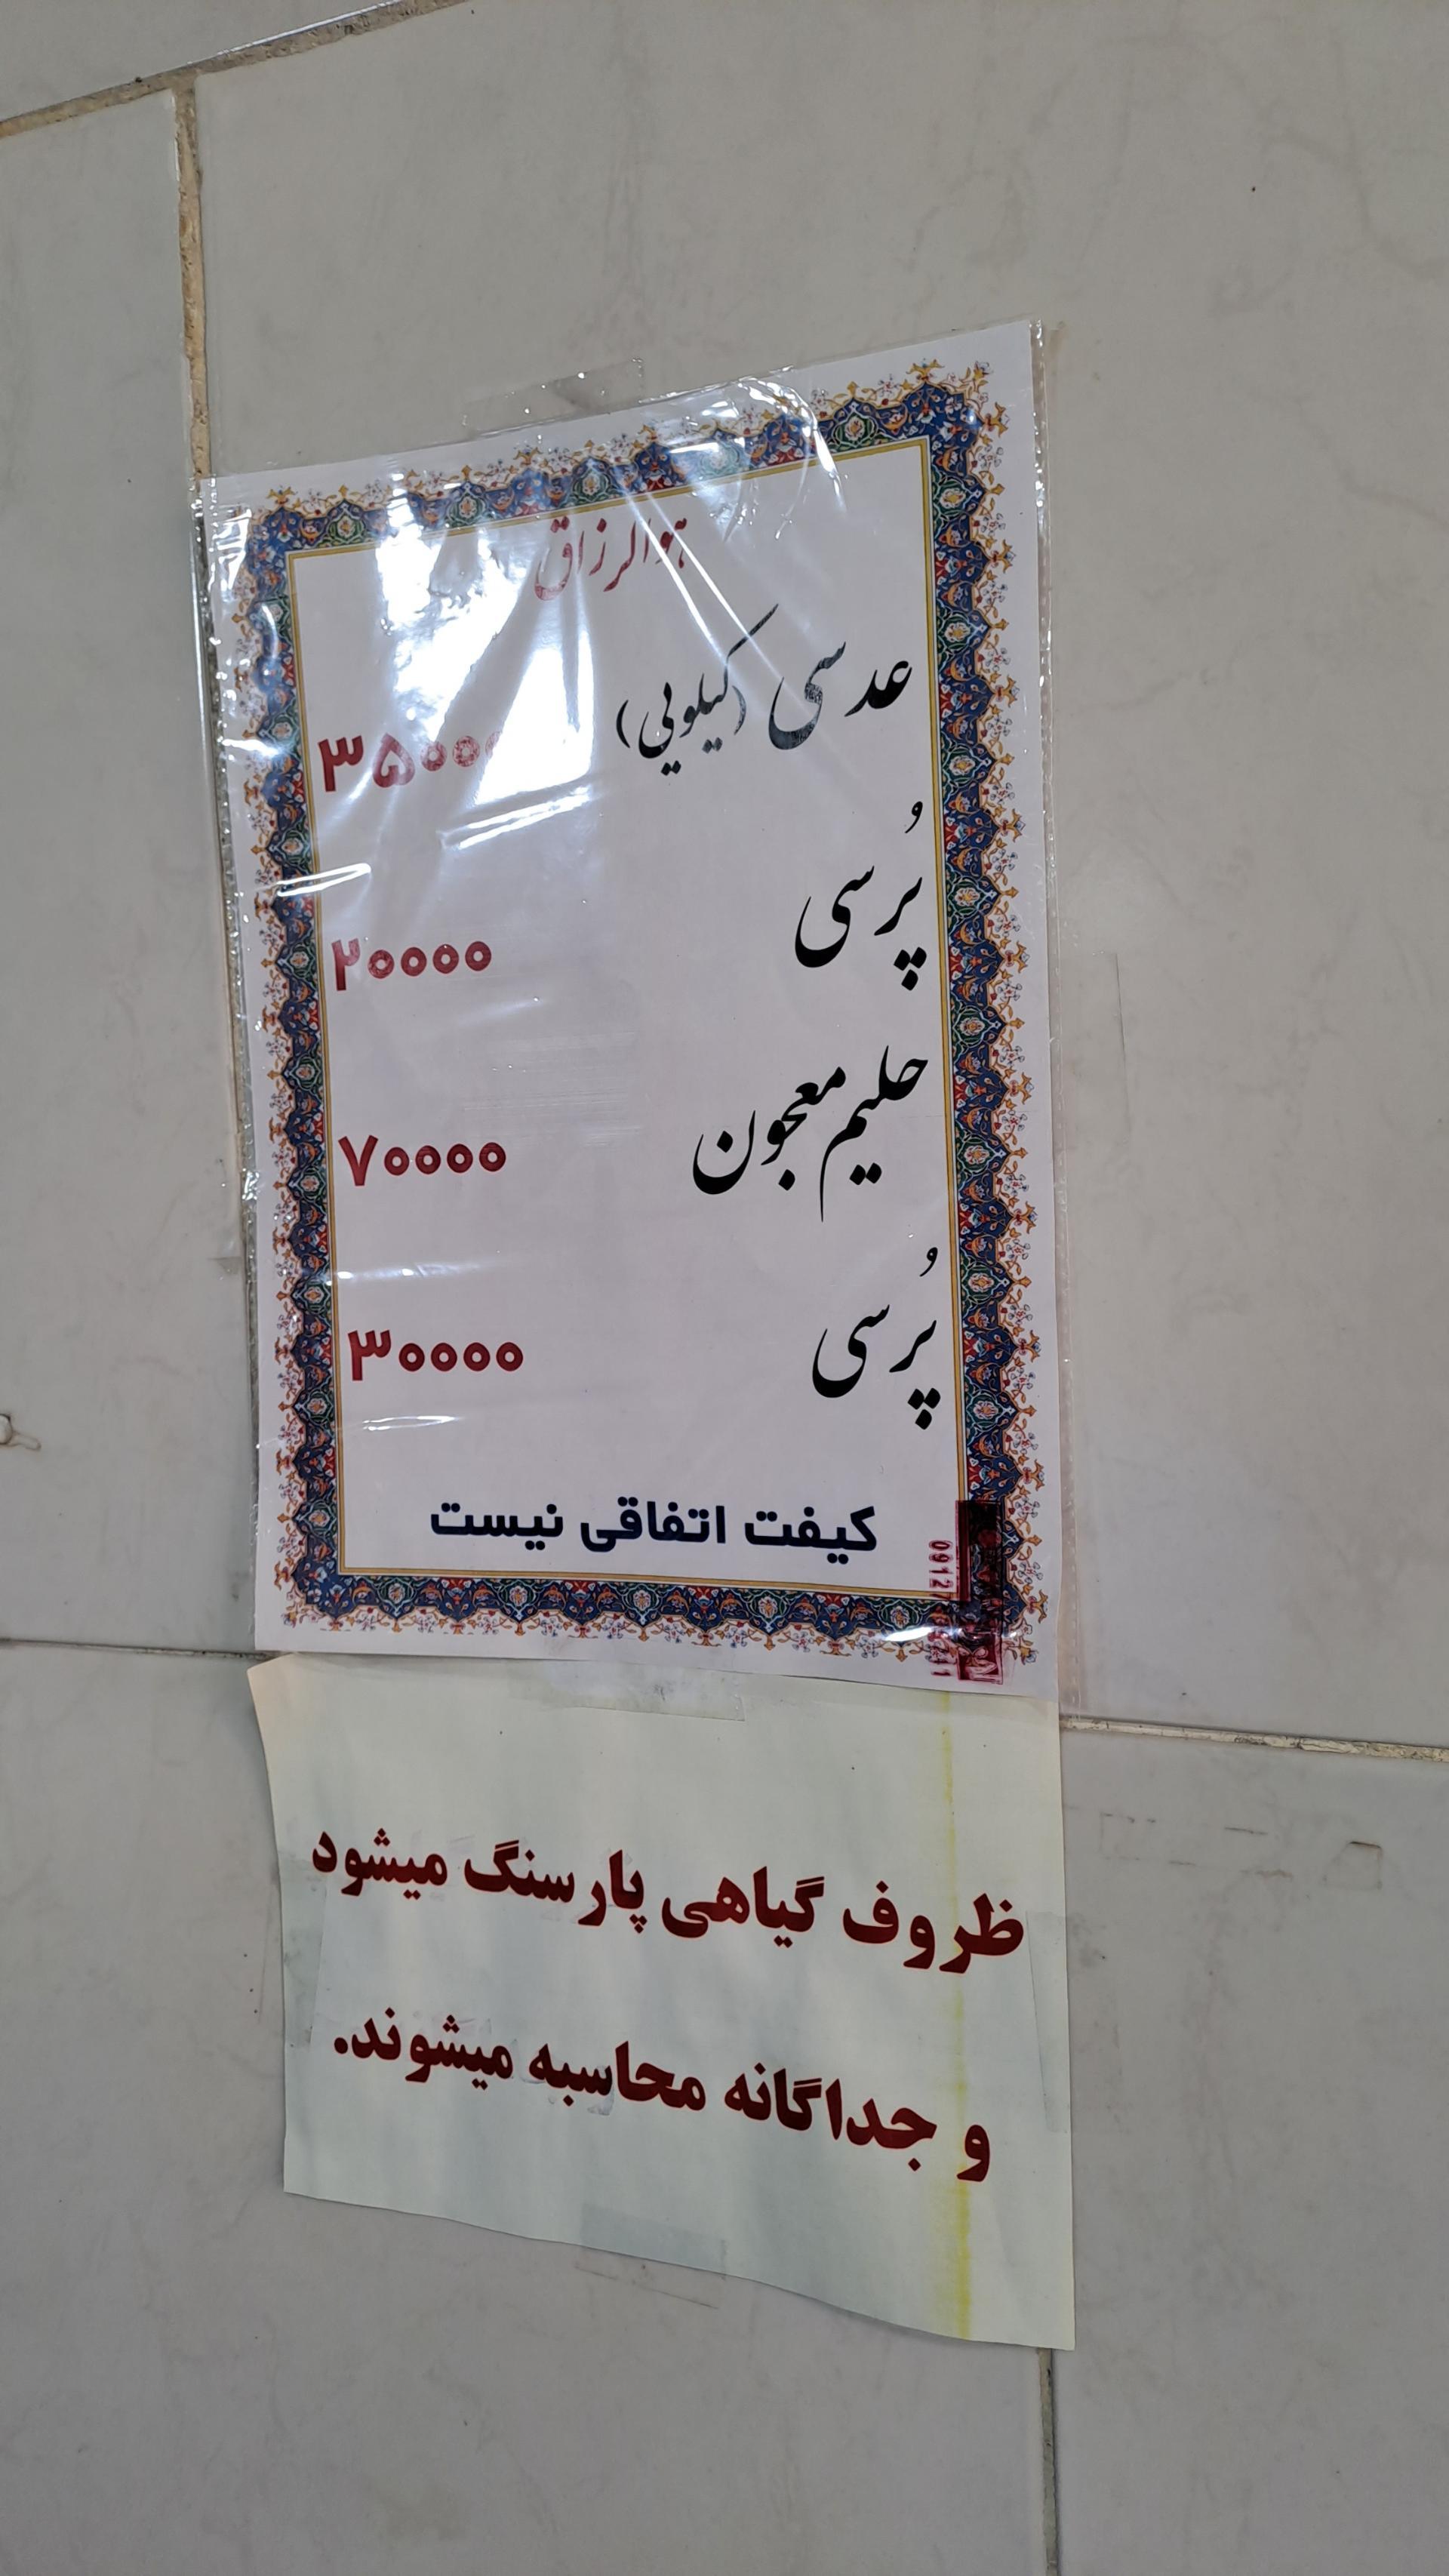 هوالرزاق
عدسی (کیلویی) ۳۵۰۰۰
پُرسی ۲۰۰۰۰
حلیم معجون ۷۰۰۰۰
پُرسی ۳۰۰۰۰
کیفت اتفاقی نیست
ظروف گیاهی پارسنگ میشود
و جداگانه محاسبه میشوند.